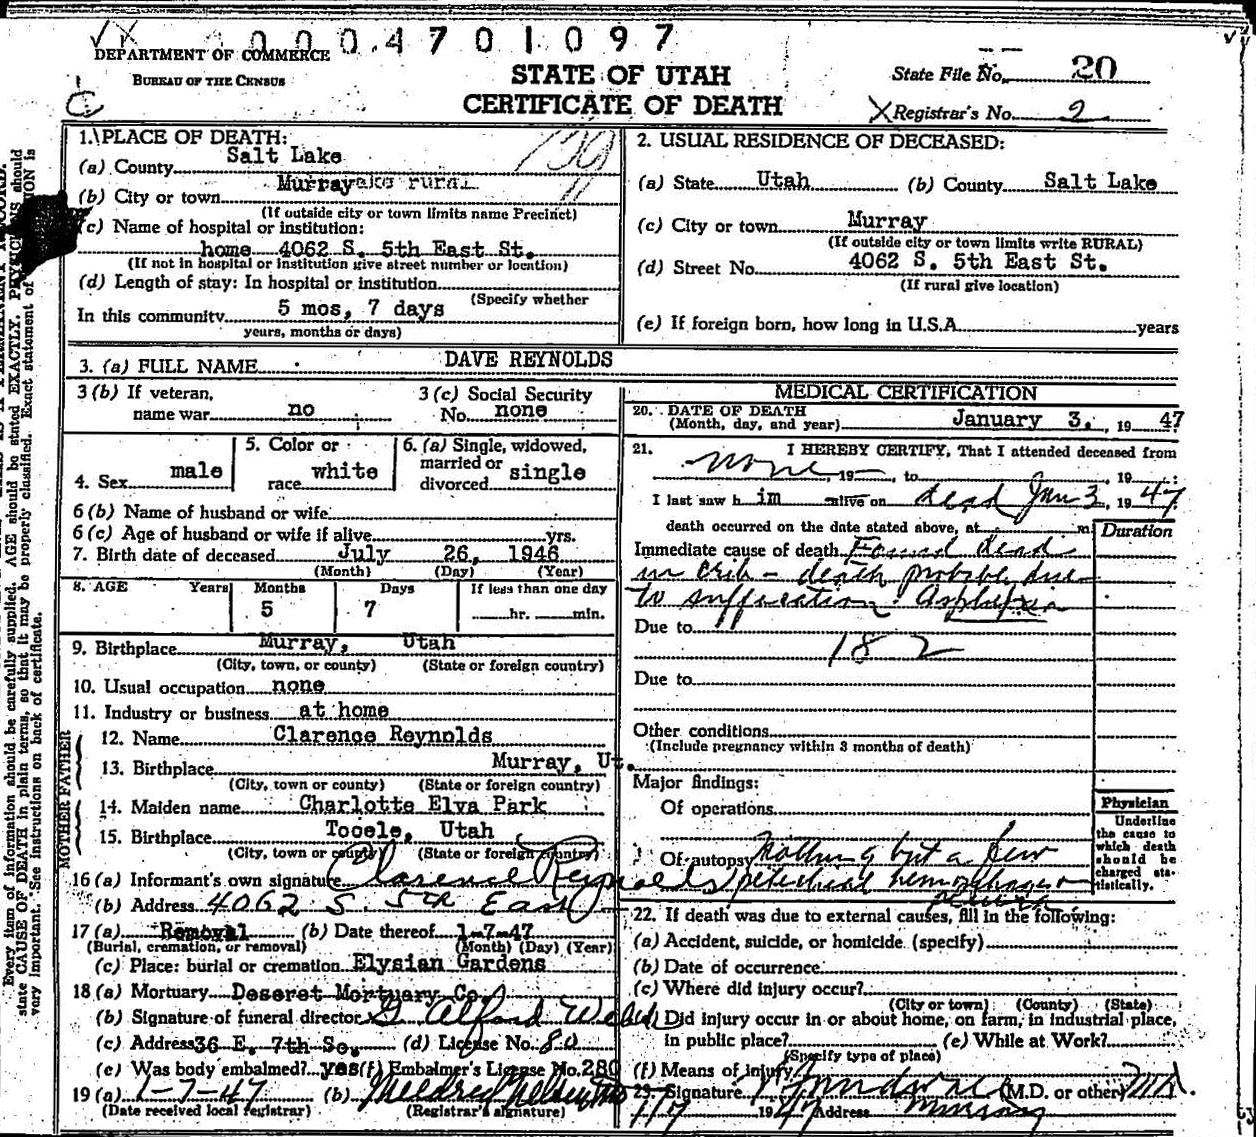 0 0 0 4 7 0 1 0 9 7
DEPARTMENT OF COMMERCE
BUREAU OF THE CENSUS
STATE OF UTAH
CERTIFICATE OF DEATH
State File No. 20
X Registrar's No. 2
1. PLACE OF DEATH:
(a) County Salt Lake
(b) City or town Murray rural
(If outside city or town limits name Precinct)
(c) Name of hospital or institution:
home 4062 S. 5th East St.
(If not in hospital or institution give street number or location)
(d) Length of stay: In hospital or institution
(Specify whether
In this community 5 mos, 7 days
years, months or days)
2. USUAL RESIDENCE OF DECEASED:
(a) State Utah (b) County Salt Lake
(c) City or town Murray
(If outside city or town limits write RURAL)
(d) Street No. 4062 S. 5th East St.
(If rural give location)
(e) If foreign born, how long in U.S.A. years
3. (a) FULL NAME DAVE REYNOLDS
3 (b) If veteran, name war no
3 (c) Social Security No. none
4. Sex male
5. Color or race white
6. (a) Single, widowed, married or divorced single
6 (b) Name of husband or wife
6 (c) Age of husband or wife if alive yrs.
7. Birth date of deceased July 26, 1946
(Month) (Day) (Year)
8. AGE Years Months Days If less than one day
5 7 hr. min.
9. Birthplace Murray, Utah
(City, town, or county) (State or foreign country)
10. Usual occupation none
11. Industry or business at home
FATHER
12. Name Clarence Reynolds
13. Birthplace Murray, Ut.
(City, town or county) (State or foreign country)
MOTHER
14. Maiden name Charlotte Elva Park
15. Birthplace Tooele, Utah
(City, town or county) (State or foreign country)
16 (a) Informant's own signature Clarence Reynolds
(b) Address 4062 S. 5th East
17 (a) Removal (b) Date thereof 1-7-47
(Burial, cremation, or removal) (Month) (Day) (Year)
(c) Place: burial or cremation Elysian Gardens
18 (a) Mortuary Deseret Mortuary Co.
(b) Signature of funeral director G Alford
(c) Address 36 E. 7th So. (d) License No. 80
(e) Was body embalmed? yes (f) Embalmer's License No. 280
19 (a) 1-7-47 (b) Mildred
(Date received local registrar) (Registrar's signature)
MEDICAL CERTIFICATION
20. DATE OF DEATH
(Month, day, and year) January 3, 1947
21. I HEREBY CERTIFY, That I attended deceased from
none, 19 to , 19
I last saw h im alive on dead Jan 3, 1947
death occurred on the date stated above, at m
Duration
Immediate cause of death Found dead
in crib - death probably due
to suffocation Asphyxia
Due to
182
Due to
Other conditions
(Include pregnancy within 3 months of death)
Major findings:
Of operations
Of autopsy Nothing but a few
petechial hemorrhages on
pleura
Physician
Underline the cause to which death should be charged statistically.
22. If death was due to external causes, fill in the following:
(a) Accident, suicide, or homicide (specify)
(b) Date of occurrence
(c) Where did injury occur?
(City or town) (County) (State)
Did injury occur in or about home, on farm, in industrial place,
in public place? (e) While at Work?
(Specify type of place)
(f) Means of injury
23. Signature (M.D. or other) MD.
1/7 1947 Address Murray
Every item of information should be carefully supplied. AGE should be stated EXACTLY. PHYSICIANS should
state CAUSE OF DEATH in plain terms, so that it may be properly classified. Exact statement of
very important. See instructions on back of certificate.